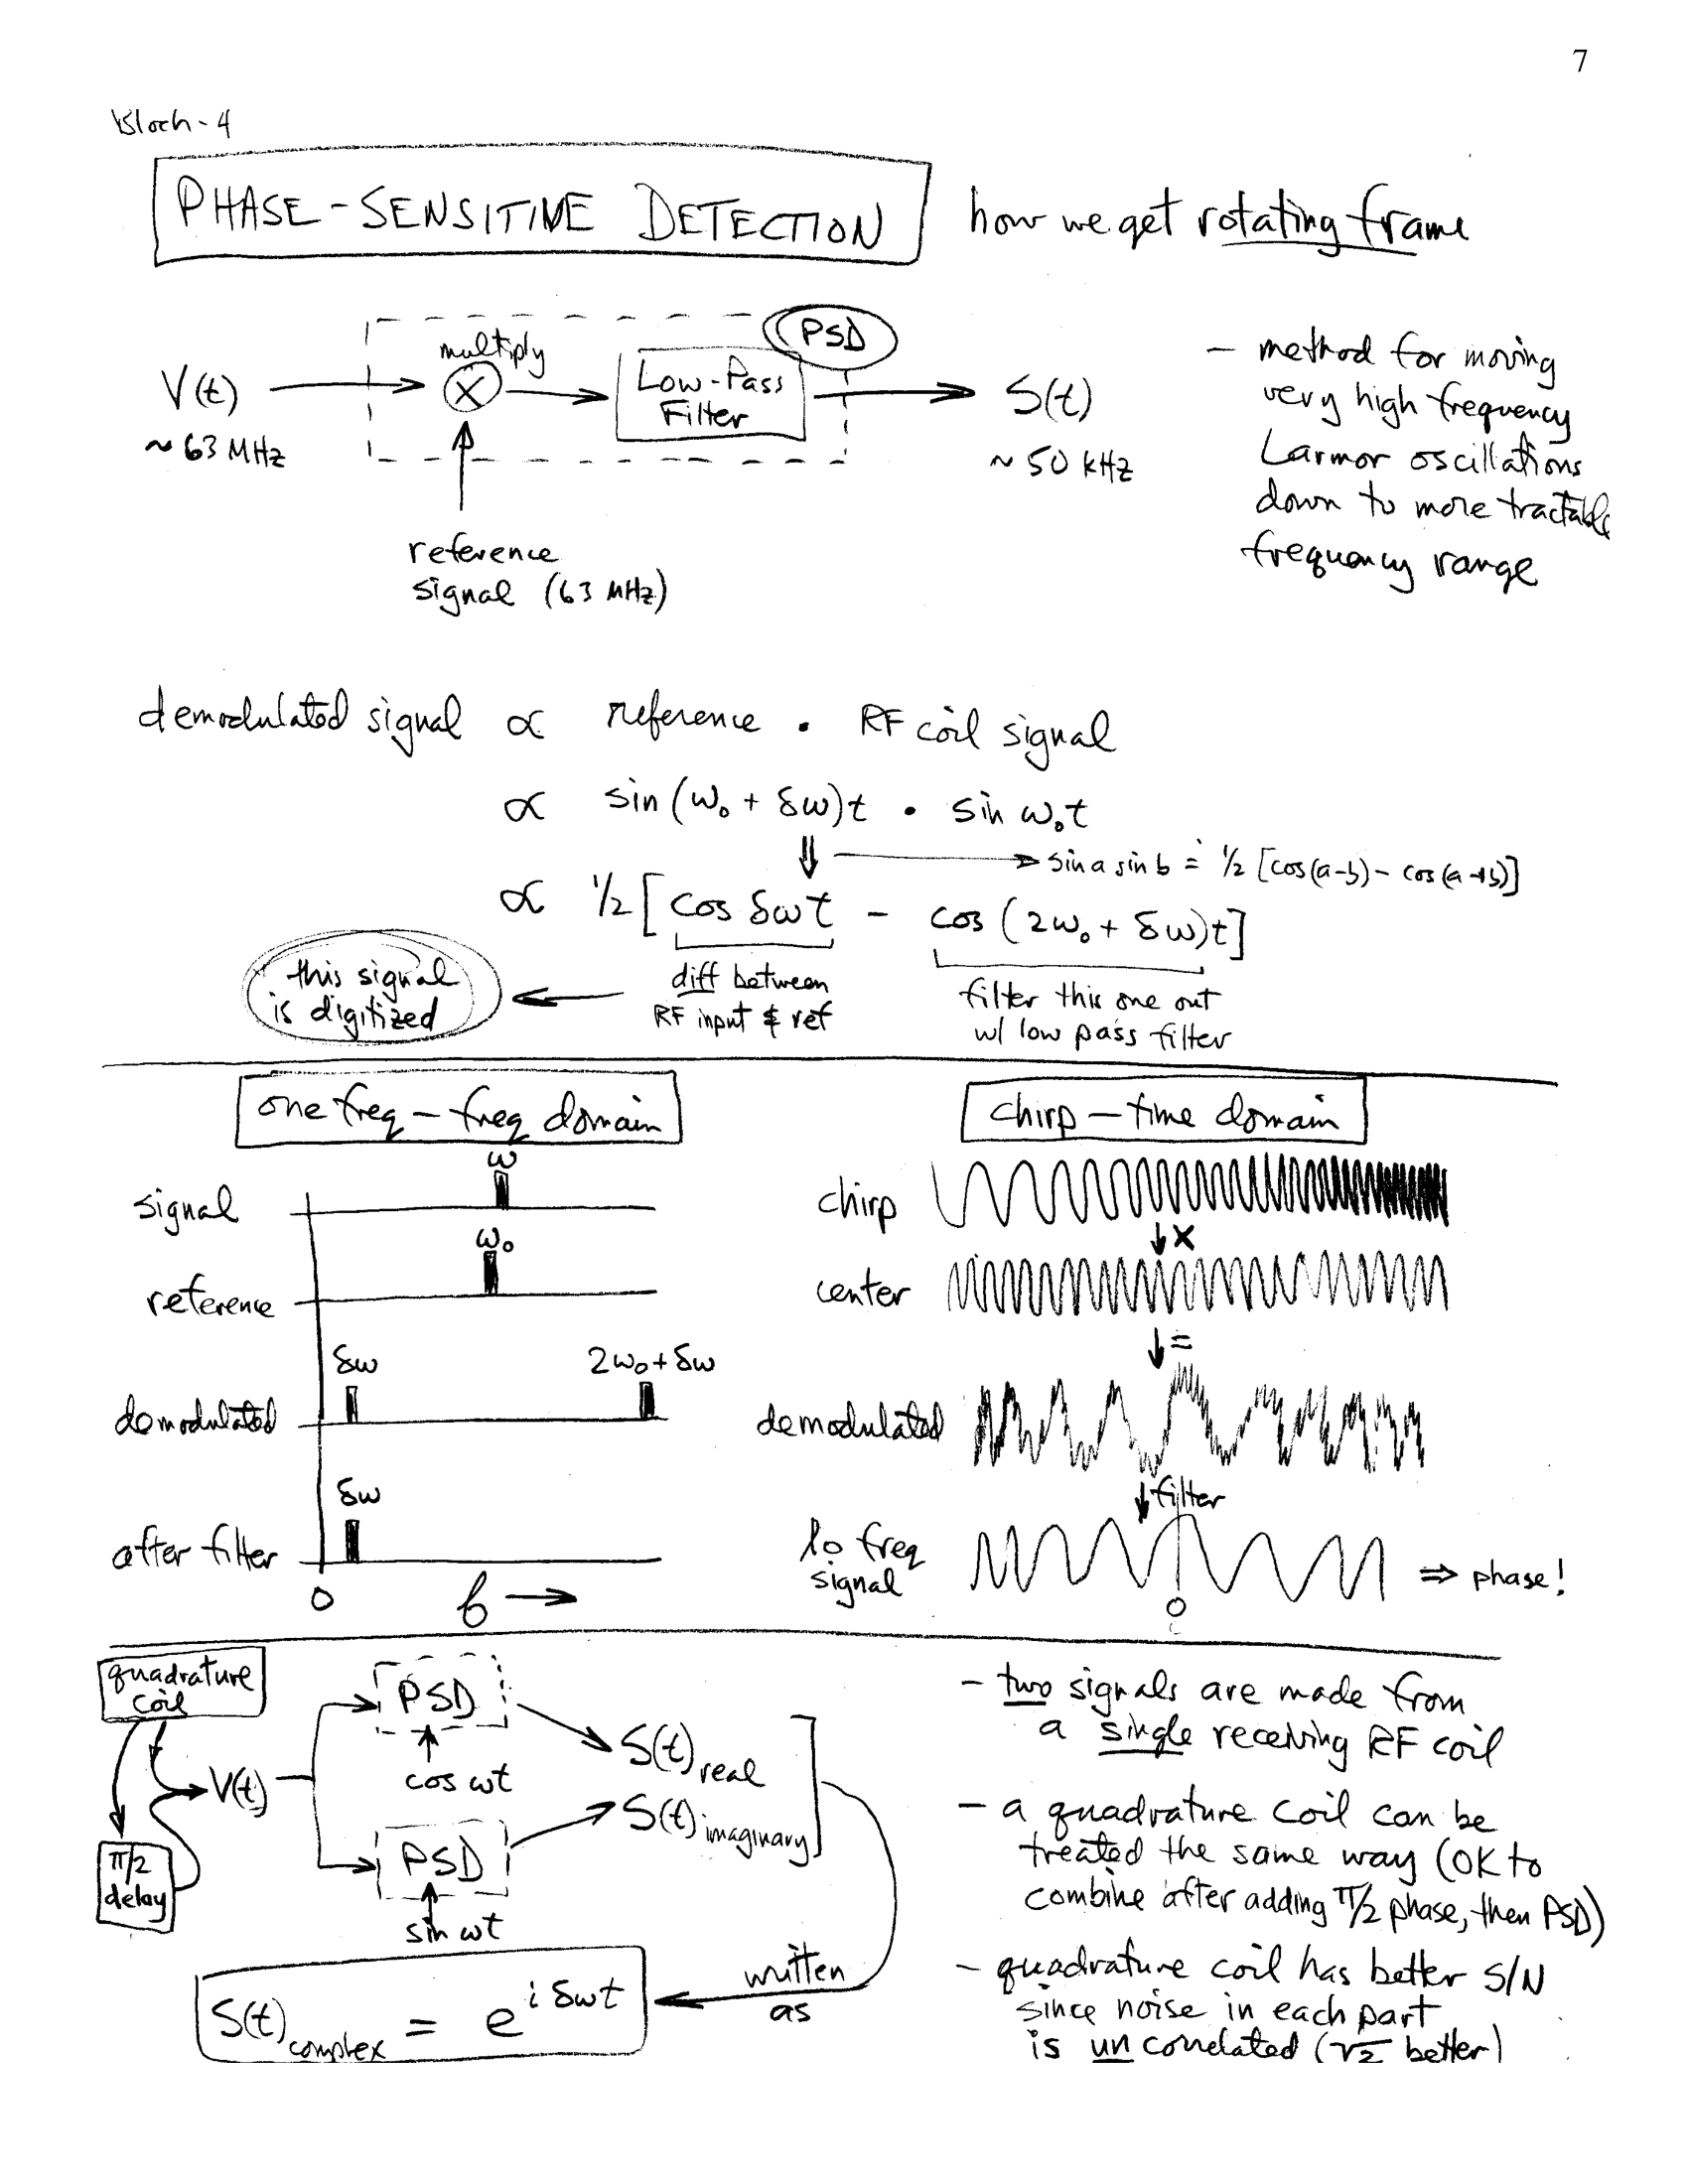 7
Bloch-4
PHASE-SENSITIVE DETECTION how we get rotating frame
V(t)
~ 63 MHz
multiply
X
Low-Pass
Filter
PSD
S(t)
~ 50 kHz
reference
signal (63 MHz)
- method for moving
very high frequency
Larmor oscillations
down to more tractable
frequency range
demodulated signal ∝ reference · RF coil signal
∝ sin(ω₀ + δω)t · sin ω₀t
⇓ → sin a sin b = ½ [cos(a-b) - cos(a+b)]
∝ ½ [cos δωt - cos (2ω₀ + δω)t]
this signal
is digitized
←
diff between
RF input & ref
filter this one out
w/ low pass filter
one freq – freq domain
signal
ω
reference
ω₀
demodulated
δω 2ω₀ + δω
after filter
δω
0 f →
chirp – time domain
chirp
↓ x
center
↓ =
demodulated
↓ filter
lo freq
signal
0
⇒ phase!
quadrature
coil
π/2
delay
V(t)
PSD
cos ωt
PSD
sin ωt
S(t) real
S(t) imaginary
written
as
S(t) complex = e^{i δωt}
- two signals are made from
a single receiving RF coil
- a quadrature coil can be
treated the same way (OK to
combine after adding π/2 phase, then PSD)
- quadrature coil has better S/N
since noise in each part
is uncorrelated (√2 better)